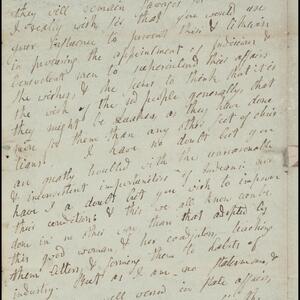 they will remain savages for
I really wish Sir that you would use
your influence to prevent this &
in procuring the appointment of judicious &
benevolent men to superintend their affairs
the wishes & the
the wish of the people generally that
they might be as they have done
more for them than any other sect of Chris
tians. I have no doubt but you
are greatly troubled with the unreasonable
& inconsistent importunities of Indians nor
have I a doubt but you wish to improve
their condition & this we all know can be
done in no other way than that adopted by
this good woman & her coadjutors, teaching
them letters & forming them to habits of
industry. But as I am no statesman &
well versed in state affairs,